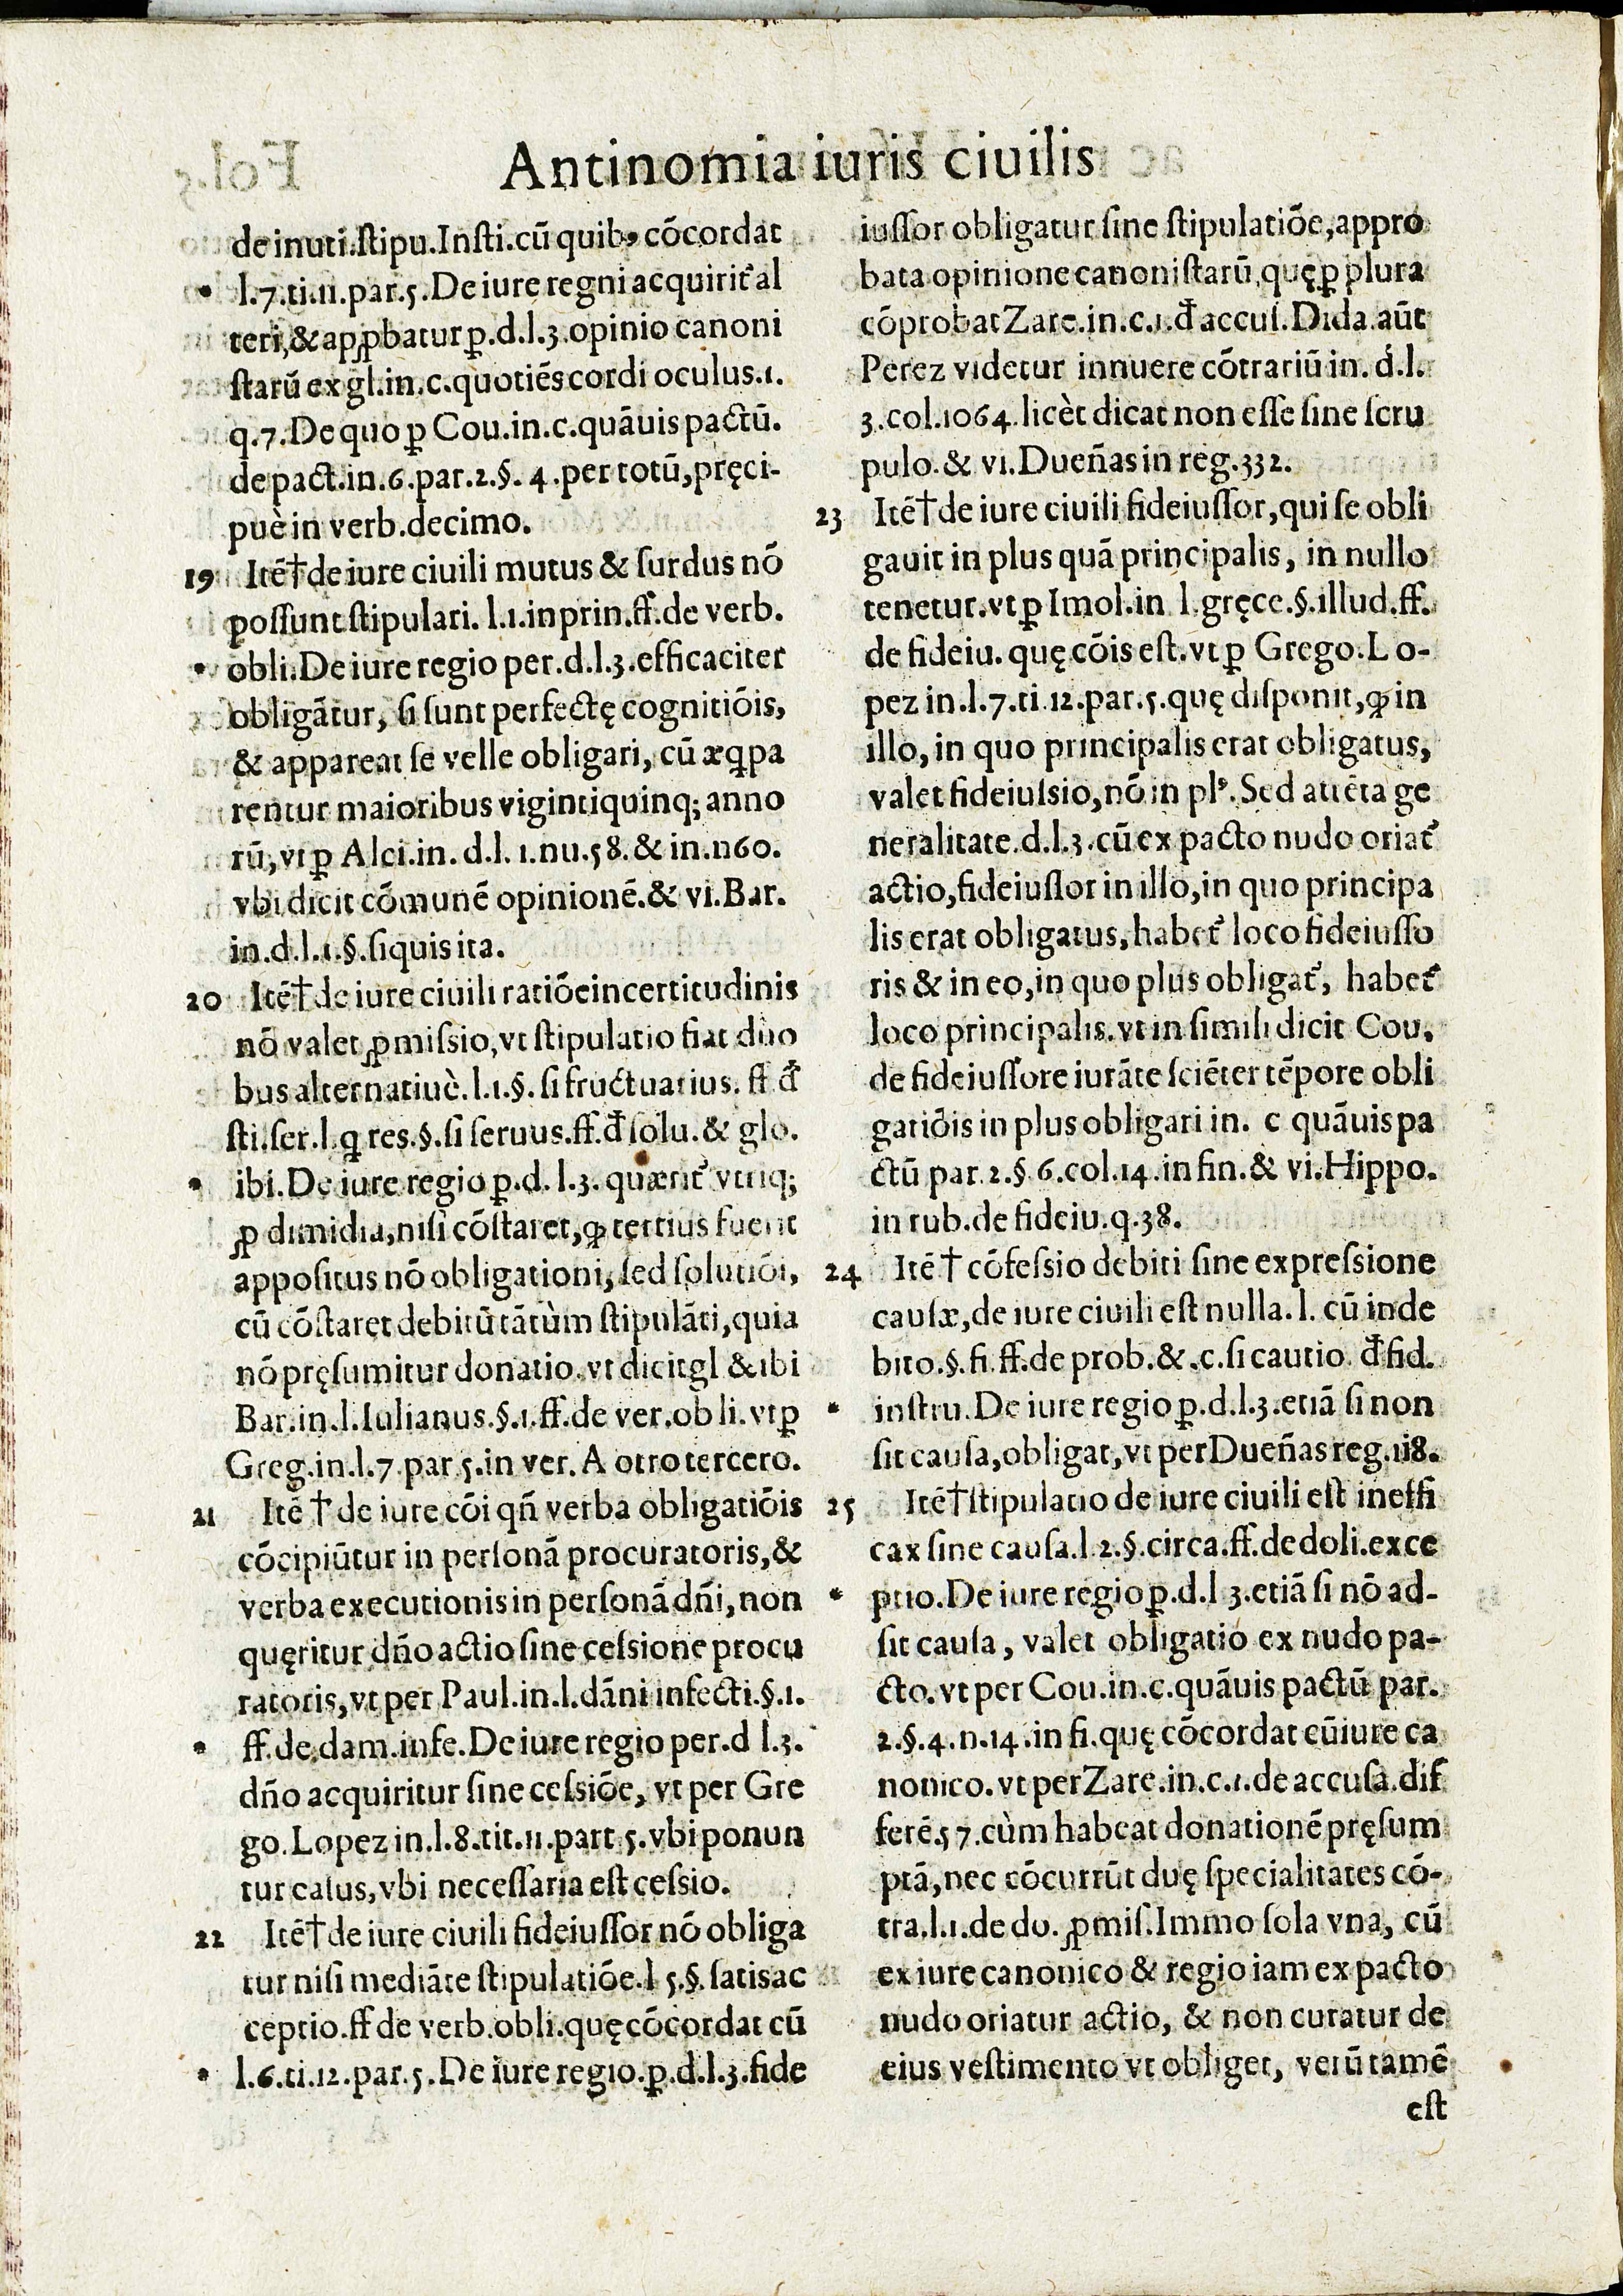 Antinomia iuris ciuilis
de inuti.stipu.Insti.cũ quibꝰ cõcordat
* l.7.ti.11.par.5.De iure regni acquirit᷑ al
teri,& apꝓbatur ꝑ.d.l.3.opinio canoni
starũ ex gl.in.c.quotiẽs cordi oculus.1.
q.7.De quo ꝑ Cou.in.c.quãuis pactũ.
de pact.in.6.par.2.§.4.per totũ,pręci-
puè in verb.decimo.
19 Itẽ†de iure ciuili mutus & surdus nõ
possunt stipulari. l.1.in prin.ff.de verb.
* obli.De iure regio per.d.l.3.efficaciter
obligãtur, si sunt perfectę cognitiõis,
& appareat se velle obligari, cũ æꝗpa
rentur maioribus vigintiquinq; anno
rũ, vt ꝑ Alci.in.d.l.1.nu.58.& in.n60.
vbi dicit cõmunẽ opinionẽ.& vi.Bar.
in.d.l.1.§.siquis ita.
20 Itẽ†de iure ciuili ratiõe incertitudinis
nõ valet ꝓmissio, vt stipulatio fiat duo
bus alternatiuè.l.1.§. si fructuarius. ff đ
sti.ser.l.ꝗ res.§.si seruus.ff.đ solu.& glo.
* ibi.De iure regio ꝑ.d.l.3. quærit᷑ vtriq;
ꝓ dimidia,nisi cõstaret,ꝙ tertius fuerit
appositus nõ obligationi, sed solutiõi,
cũ cõstaret debitũ tãtùm stipulãti,quia
nõ pręsumitur donatio.vt dicit gl & ibi
Bar.in.l.Iulianus.§.1.ff.de ver.obli.vt ꝑ
Greg.in.l.7.par 5.in ver.A otro tercero.
21 Itẽ † de iure cõi qñ verba obligatiõis
cõcipiũtur in personã procuratoris,&
verba executionis in personã dñi, non
quęritur dño actio sine cessione procu
ratoris, vt per Paul.in.l.dãni infecti.§.1.
* ff.de.dam.infe.De iure regio per.d l.3.
dño acquiritur sine cessiõe, vt per Gre
go.Lopez in.l.8.tit.11.part.5.vbi ponun
tur casus, vbi necessaria est cessio.
22 Itẽ†de iure ciuili fideiussor nõ obliga
tur nisi mediãte stipulatiõe.l 5.§. satisac
ceptio.ff de verb.obli.quę cõcordat cũ
* l.6.ti.12.par.5.De iure regio.ꝑ.d.l.3.fide
iussor obligatur sine stipulatiõe, appro
bata opinione canonistarũ, quę ꝑ plura
cõprobat Zare.in.c.1.đ accus.Dida.aũt
Perez videtur innuere cõtrariũ in. d.l.
3.col.1064.licèt dicat non esse sine scru
pulo.& vi.Dueñas in reg.332.
23 Itẽ†de iure ciuili fideiussor, qui se obli
gauit in plus quã principalis, in nullo
tenetur.vt ꝑ Imol.in l.gręce.§.illud.ff.
de fideiu. quę cõis est.vt ꝑ Grego.Lo-
pez in.l.7.ti.12.par.5.quę disponit,ꝙ in
illo, in quo principalis erat obligatus,
valet fideiussio, nõ in plꝰ. Sed attẽta ge
neralitate.d.l.3.cũ ex pacto nudo oriat᷑
actio, fideiussor in illo, in quo principa
lis erat obligatus, habet᷑ loco fideiusso
ris & in eo, in quo plus obligat᷑, habet᷑
loco principalis.vt in simili dicit Cou.
de fideiussore iurãte sciẽter tẽpore obli
gatiõis in plus obligari in. c quãuis pa
ctũ par.2.§ 6.col.14.in fin.& vi.Hippo.
in rub.de fideiu.q.38.
24 Itẽ † cõfessio debiti sine expressione
causæ, de iure ciuili est nulla. l. cũ inde
bito.§.fi.ff.de prob.&.c.si cautio. đ fid.
* instru.De iure regio ꝑ.d.l.3.etiã si non
sit causa, obligat, vt per Dueñas reg.118.
25 Itẽ†stipulatio de iure ciuili est ineffi
cax sine causa.l.2.§.circa.ff.de doli.exce
* ptio.De iure regio ꝑ.d.l 3.etiã si nõ ad-
sit causa, valet obligatio ex nudo pa-
cto.vt per Cou.in.c.quãuis pactũ par.
2.§.4.n.14.in fi.quę cõcordat cũ iure ca
nonico.vt per Zare.in.c.1.de accusa.dif
ferẽ.57.cùm habeat donationẽ pręsum
ptã, nec cõcurrũt duę specialitates cõ-
tra.l.1.de do. ꝓmis.Immo sola vna, cũ
ex iure canonico & regio iam ex pacto
nudo oriatur actio, & non curatur de
eius vestimento vt obliget, verũ tamẽ
est